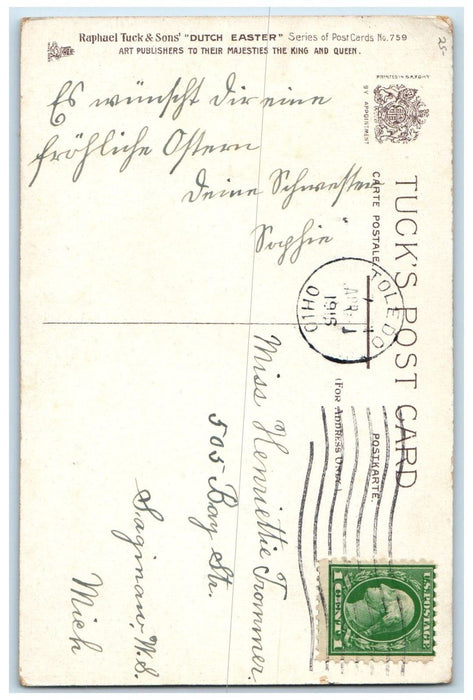 Raphael Tuck & Sons' "DUTCH EASTER" Series of Post Cards No. 759
ART PUBLISHERS TO THEIR MAJESTIES THE KING AND QUEEN.
25-
PRINTED IN SAXONY
BY APPOINTMENT
TUCK'S POST CARD
CARTE POSTALE
POSTKARTE.
(FOR ADDRESS ONLY)
Es wünscht Dir eine
fröhliche Ostern
Deine Schwester
Sophie
TOLEDO
APR
1915
OHIO
Miss Henriettie Trommer.
505 Bay Str.
Saginaw, W.S.
Mich
U.S. POSTAGE
1 CENT 1